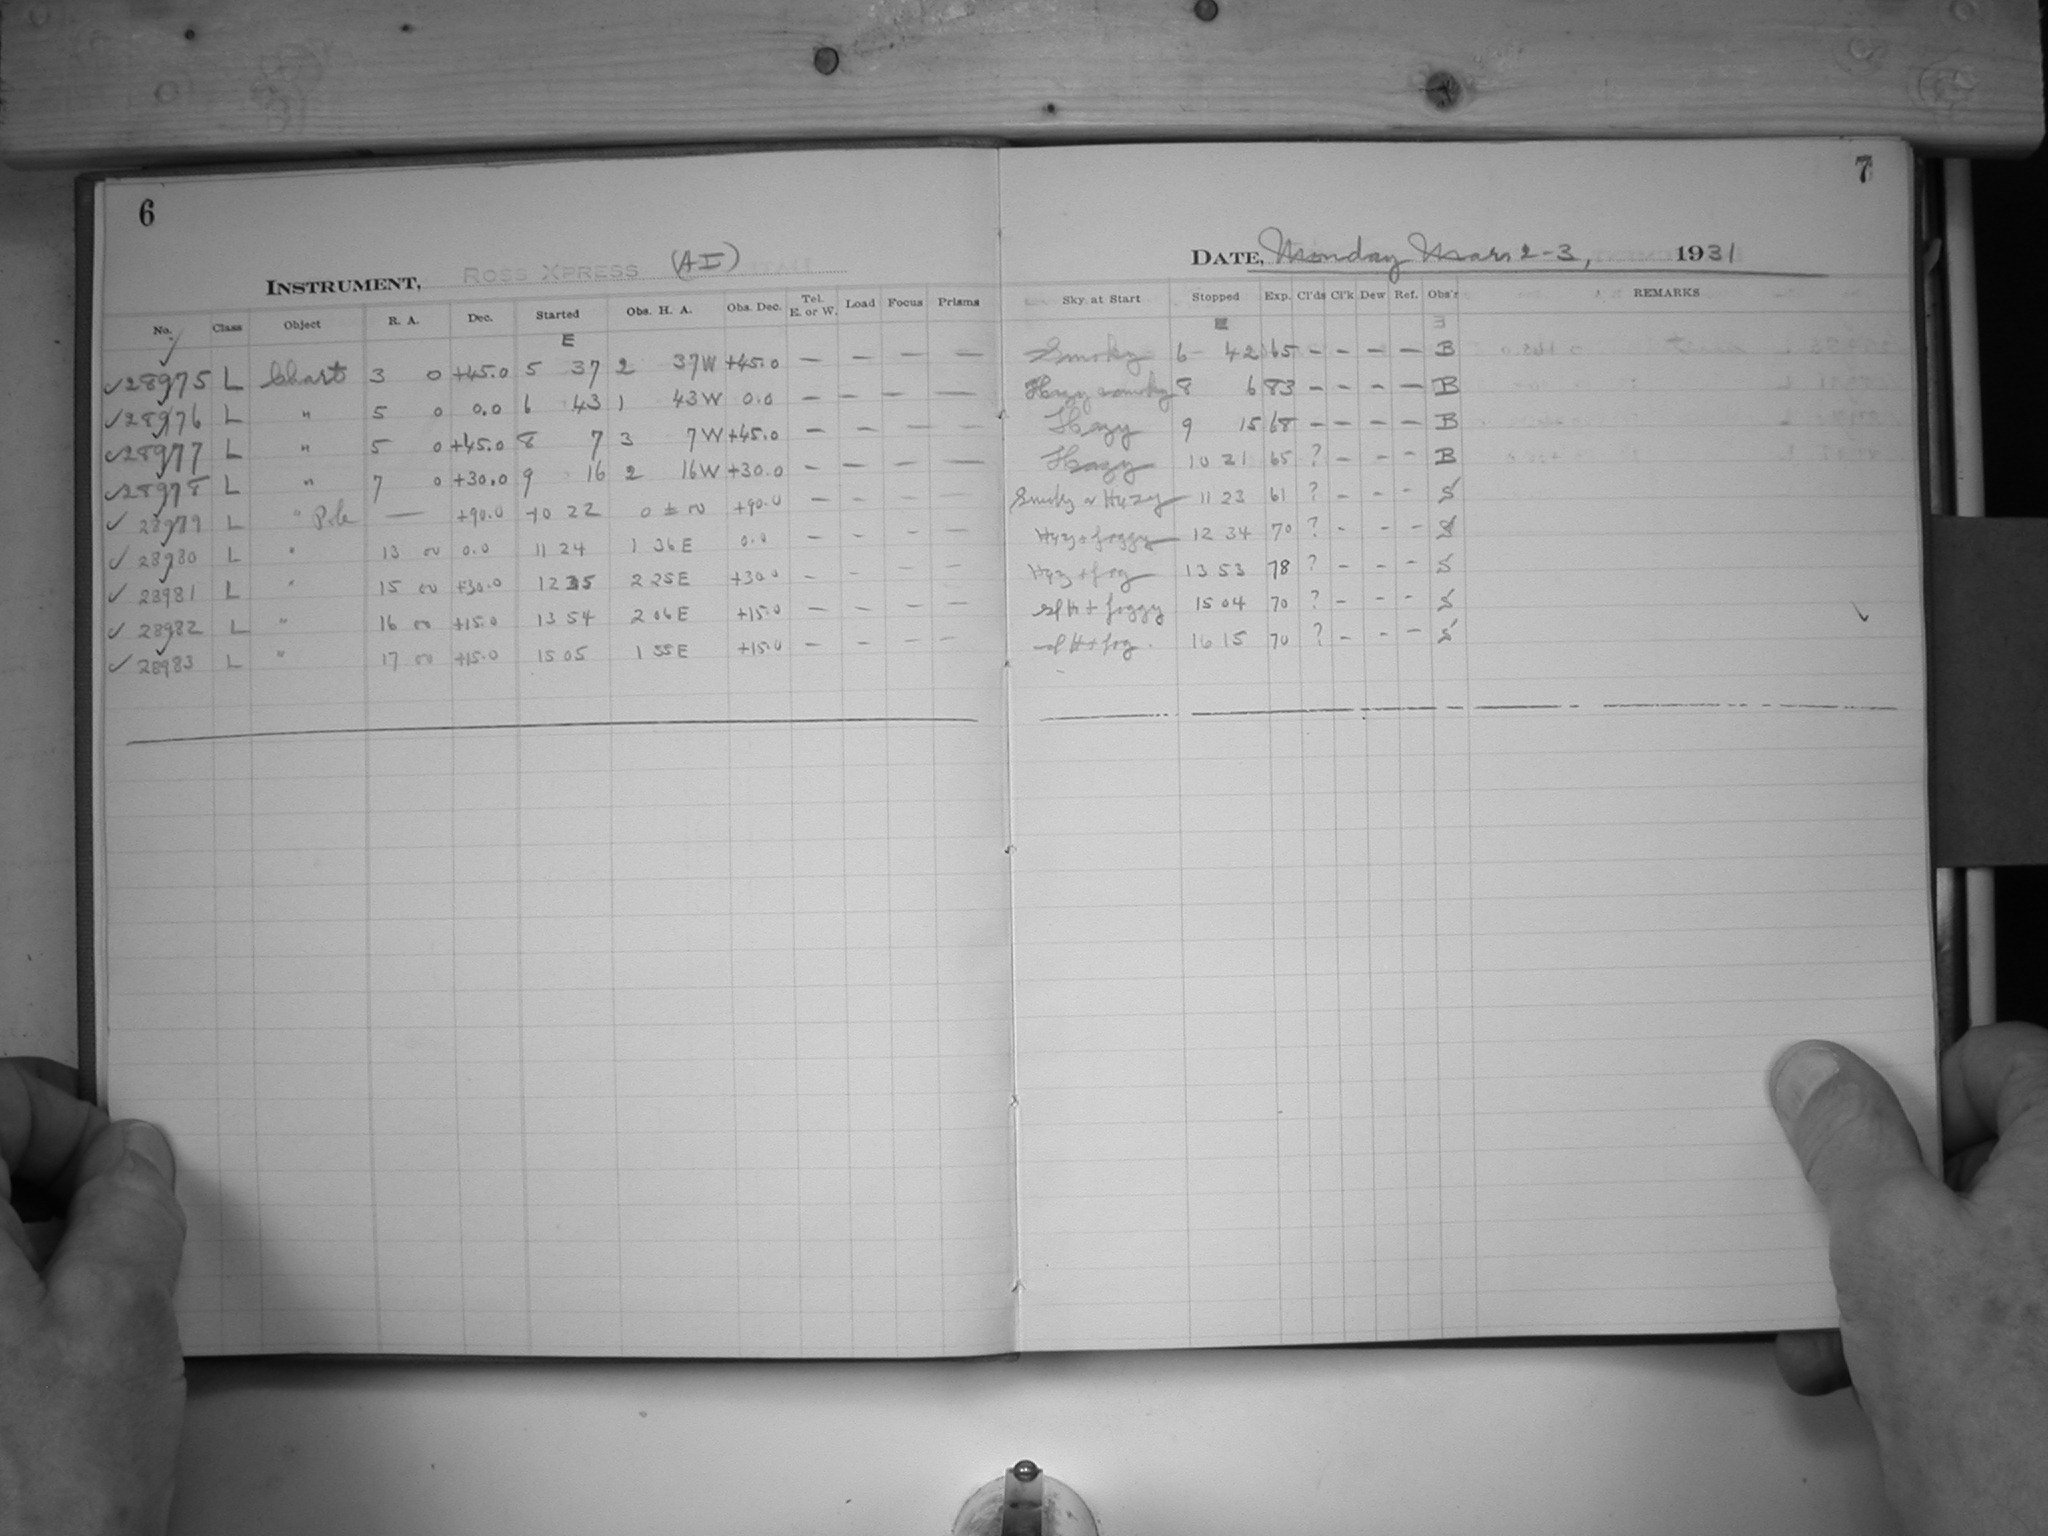 6
INSTRUMENT, ROSS XPRESS (AI)
No. Class Object R. A. Dec. Started Obs. H. A. Obs. Dec. Tel. E. or W. Load Focus Prisms
E
✓28975 L Chart 3 0 +45.0 5 37 2 37W +45.0 — — — —
✓28976 L " 5 0 0.0 6 43 1 43W 0.0 — — — —
✓28977 L " 5 0 +45.0 8 7 3 7W +45.0 — — — —
✓28978 L " 7 0 +30.0 9 16 2 16W +30.0 — — — —
✓ 28979 L " Pole — +90.0 10 22 0 ± 00 +90.0 — — — —
✓ 28980 L " 13 00 0.0 11 24 1 36E 0.0 — — — —
✓ 28981 L " 15 00 +30.0 12 35 2 25E +30.0 — — — —
✓ 28982 L " 16 00 +15.0 13 54 2 06E +15.0 — — — —
✓ 28983 L " 17 00 +15.0 15 05 1 55E +15.0 — — — —
7
DATE, Monday Mar. 2-3, 1931
Sky at Start Stopped Exp. Cl'ds Cl'k Dew Ref. Obs'r REMARKS
E
Smoky 6 42 65 - - - - B
Hazy smoky 8 6 83 - - - - B
Hazy 9 15 68 - - - - B
Hazy 10 21 65 ? - - - B
Smoky Hazy 11 23 61 ? - - - S
Hazy + foggy 12 34 70 ? - - - S
Hazy + fog 13 53 78 ? - - - S
sl H + foggy 15 04 70 ? - - - S
sl H + fog. 16 15 70 ? - - - S